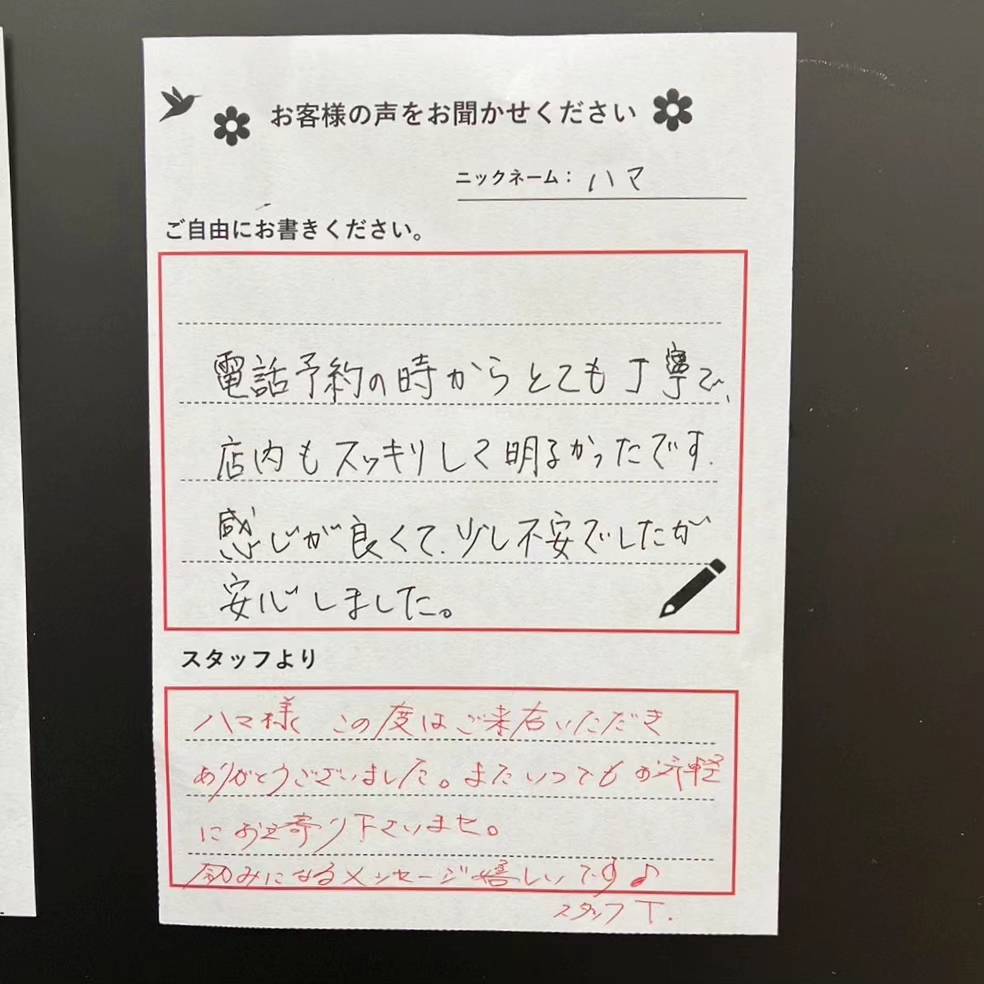 お客様の声をお聞かせください
ニックネーム： ハマ
ご自由にお書きください。
電話予約の時からとても丁寧で、
店内もスッキリして明るかったです.
感じが良くて、少し不安でしたが
安心しました。
スタッフより
ハマ様 この度はご来店いただき
ありがとうございました。またいつでもお気軽
にお立寄り下さいませ。
励みになるメッセージ嬉しいです♪
スタッフ T.